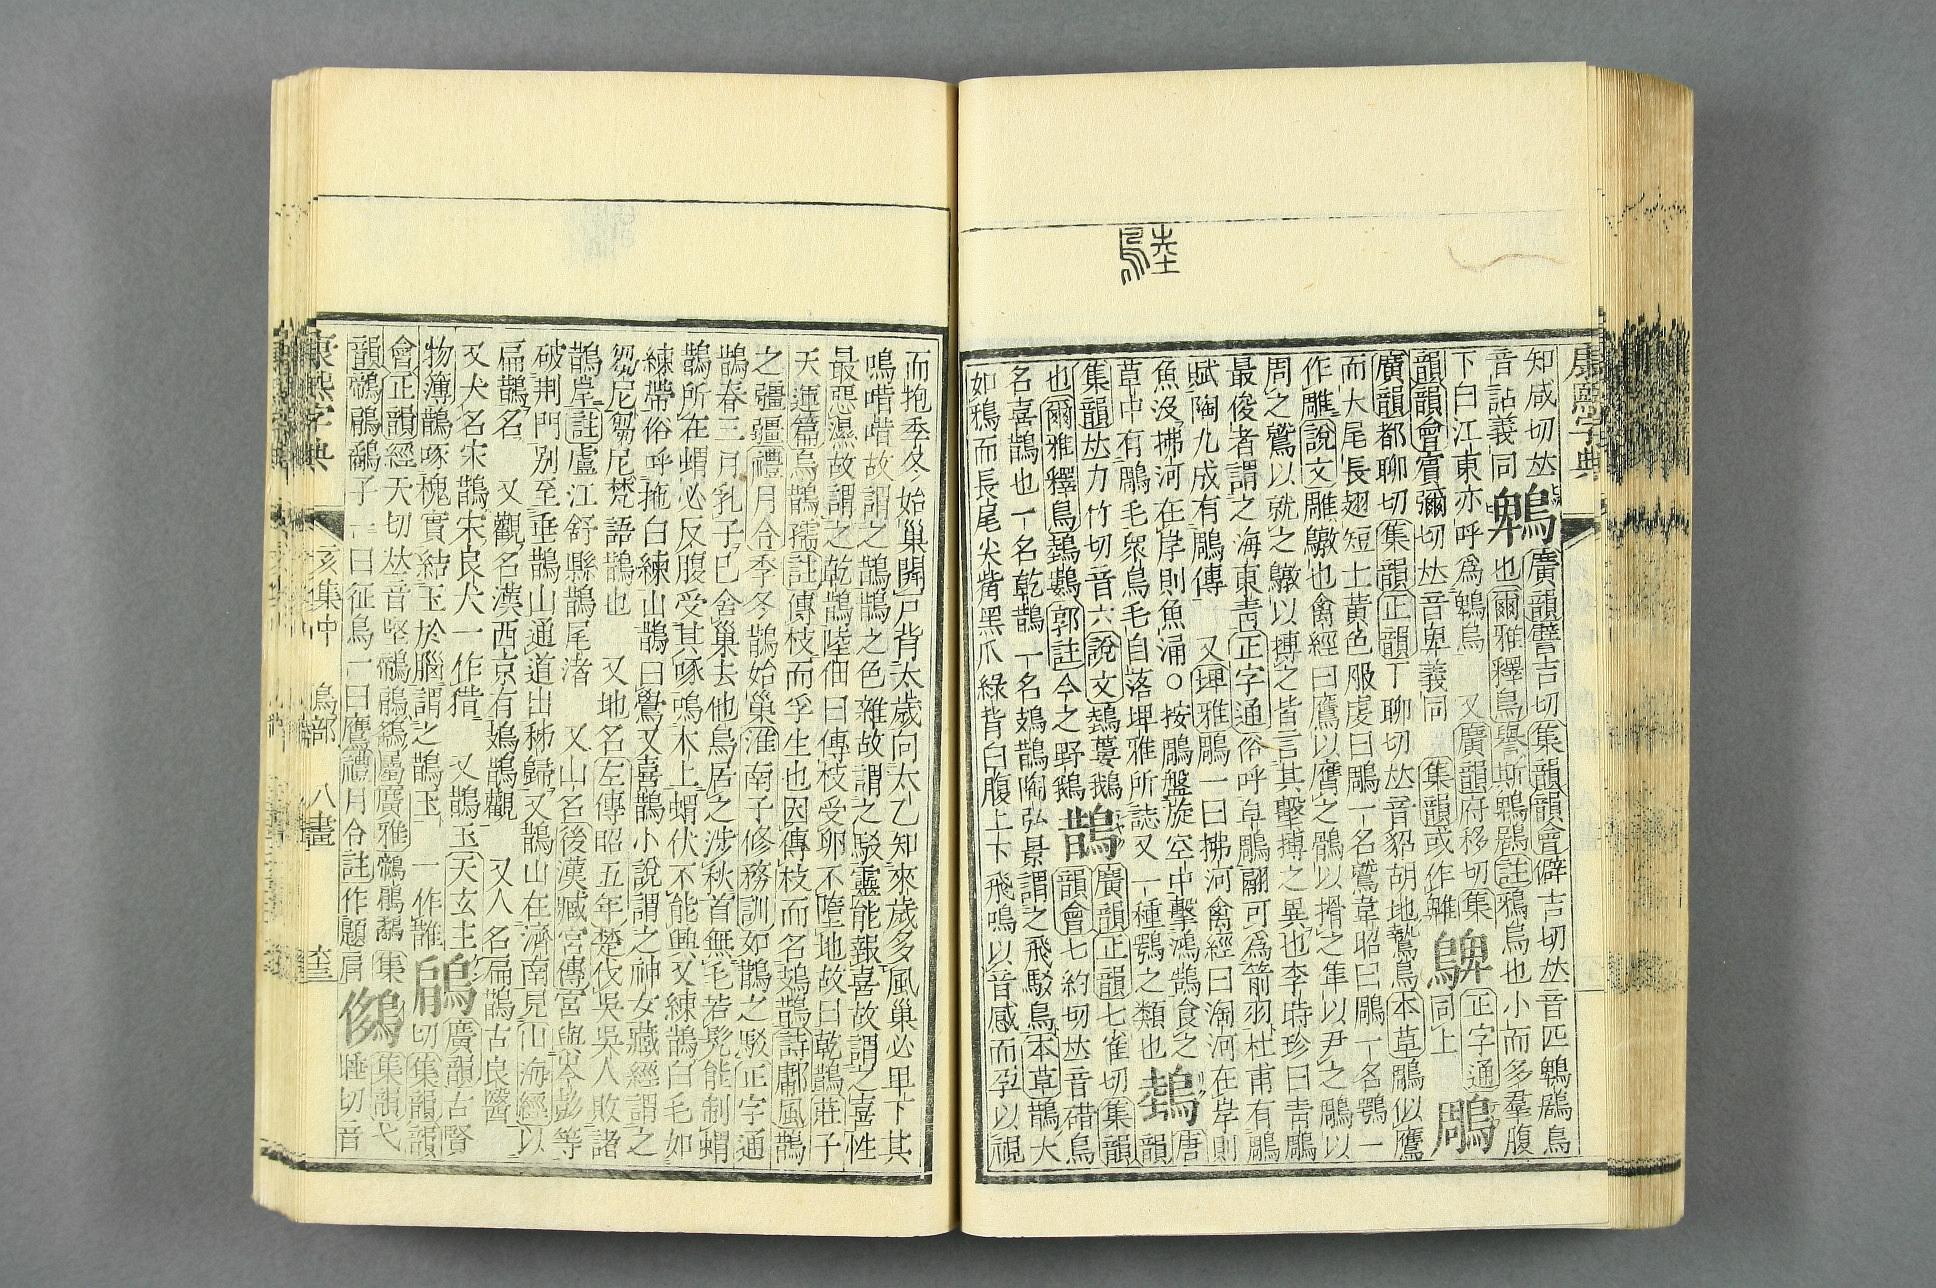 鵱
知咸切𠀤
音詀義同
鵯
廣韻譬吉切集韻韻會僻吉切𠀤音匹鵯鶋鳥
也爾雅釋鳥鸒斯鵯鶋註鴉烏也小而多羣腹
下白江東亦呼爲鵯烏 又廣韻府移切集
韻韻會賓彌切𠀤音卑義同 集韻或作雗
鵯
同上
正字通
鵰
廣韻都聊切集韻正韻丁聊切𠀤音貂胡地鷙鳥本草鵰似鷹
而大尾長翅短土黃色服虔曰鵰一名鷲韋昭曰鵰一名鶚一
作雕說文雕鷻也禽經曰鷹以膺之鶻以搰之隼以尹之鵰以
周之鷲以就之鷻以搏之皆言其擊搏之異也李時珍曰靑鵰
最俊者謂之海東靑正字通俗呼皁鵰翮可爲箭羽杜甫有鵰
賦陶九成有鵰傳 又埤雅鵰一曰拂河禽經曰淘河在岸則
魚沒拂河在岸則魚涌○按鵰盤旋空中擊鴻鵠食之
草中有鵰毛衆鳥毛自落埤雅所誌又一種鶚之類也
鵱
唐韻
集韻𠀤力竹切音六說文鵱蔞鵝
也爾雅釋鳥鵱鷜郭註今之野鵝
鵲
廣韻正韻七雀切集韻
韻會七約切𠀤音碏鳥
名喜鵲也一名乾鵲一名鳷鵲陶弘景謂之飛駁鳥本草鵲大
如鴉而長尾尖觜黑爪綠背白腹上下飛鳴以音感而孕以視
而抱季冬始巢開戶背太歲向太乙知來歲多風巢必卑下其
鳴唶唶故謂之鵲鵲之色雜故謂之駁靈能報喜故謂之喜性
最惡濕故謂之乾鵲陸佃曰傳枝受卵不墮地故曰乾鵲莊子
天運篇烏鵲孺註傳枝而孚生也因傳枝而名鳷鵲詩鄘風鵲
之彊彊禮月令季冬鵲始巢淮南子修務訓如鵲之駁正字通
鵲春三月乳子已舍巢去他鳥居之涉秋首無毛若髡能制蝟
鵲所在蝟必反腹受其啄鳴木上蝟伏不能興又練鵲白毛如
練帶俗呼拖白練山鵲曰鷽又喜鵲小說謂之神女藏經謂之
芻尼芻尼梵語鵲也 又地名左傳昭五年楚伐吳吳人敗諸
鵲岸註盧江舒縣鵲尾渚 又山名後漢臧宮傳宮與岑彭等
破荆門別至垂鵲山通道出秭歸又鵲山在濟南見山海經以
扁鵲名 又觀名漢西京有鳷鵲觀 又人名扁鵲古良醫
又犬名宋鵲宋良犬一作猎 又鵲玉天玄主
物簿鵲啄槐實結玉於腦謂之鵲玉 一作䧿
鵳
廣韻古賢
切集韻韻
會正韻經天切𠀤音堅鶙鵳鷂屬廣雅鶙鵳鷂集
韻鶙鵳鷂子一曰征鳥一曰鷹禮月令註作題肩
集韻弋
睡切音
陸鳥
康熙字典
亥集中 鳥部 八畫
康熙字典